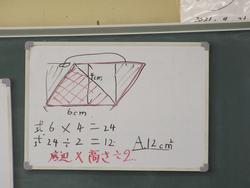 4cm
6cm
式 6 × 4 = 24
式 24 ÷ 2 = 12
A.12cm²
底辺×高さ÷2